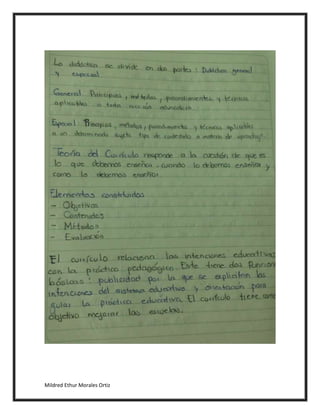 La didáctica se divide en dos partes: Didáctica general
y especial
General: Principios, métodos, procedimientos y técnicas
aplicables a toda acción educadora.
Especial: Principios, métodos, procedimientos y técnicas aplicables
a un determinado sujeto tipo de contenido o materia de aprendizaje.
Teoría del Currículo responde a la cuestión de que es
lo que debemos enseñar, cuando lo debemos enseñar y
como lo debemos enseñar.
Elementos constituidos
- Objetivos
- Contenidos
- Métodos
- Evaluación
El currículo relaciona las intenciones educativas
con la práctica pedagógica. Este tiene dos funciones
básicas: publicidad por la que se explicitan las
intenciones del sistema educativo y orientación para
guiar la práctica educativa. El currículo tiene como
objetivo mejorar las escuelas.
Mildred Ethur Morales Ortiz